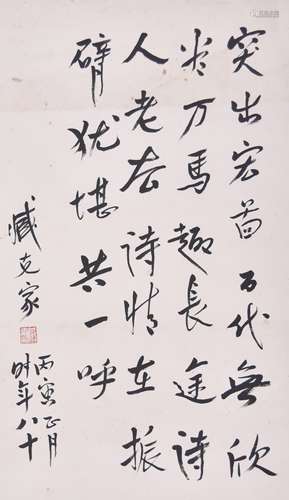 突出宏啚百代無欣
看万馬趋長途诗
人老去诗情在振
臂犹堪共一呼
臧克家
丙寅正月
时年八十